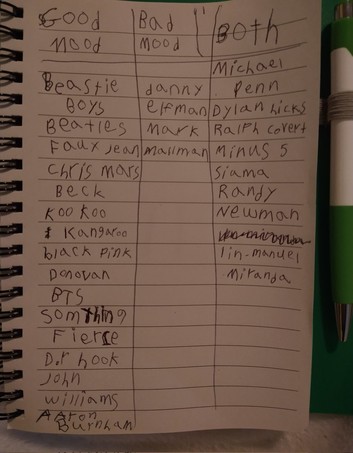 Good Bad Both
mood mood
Michael
Beastie danny Penn
Boys elfman Dylan hicks
Beatles Mark Ralph covert
Faux Jean Mallman Minus 5
Chris Mars Slama
Beck Randy
Koo Koo Newman
Kangaroo
black pink lin-manuel
Donovan Miranda
BTS
Somthing
Fierce
D.r hook
John
Williams
Aaron
Burnham